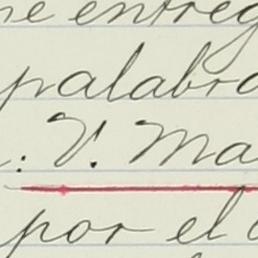 me entreg
palabra
: V. Ma
por el